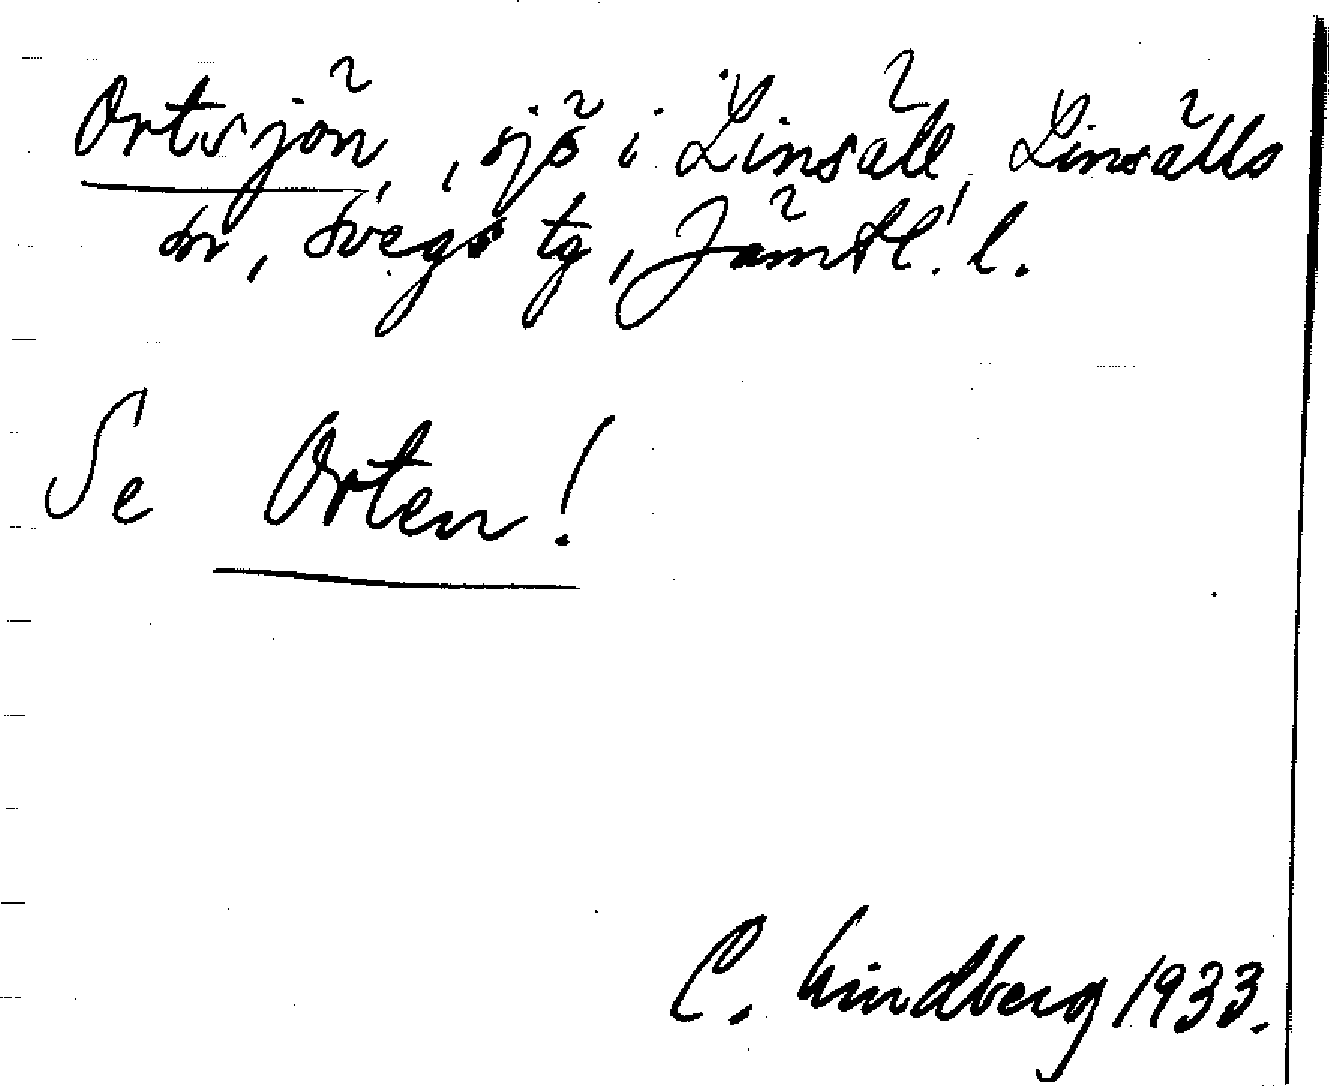 Ortsjön, , sjö i Linsäll, Linsälls
sn, Svegs tg, Jämtl. l.
Se Orten!
C. Lindberg 1933.